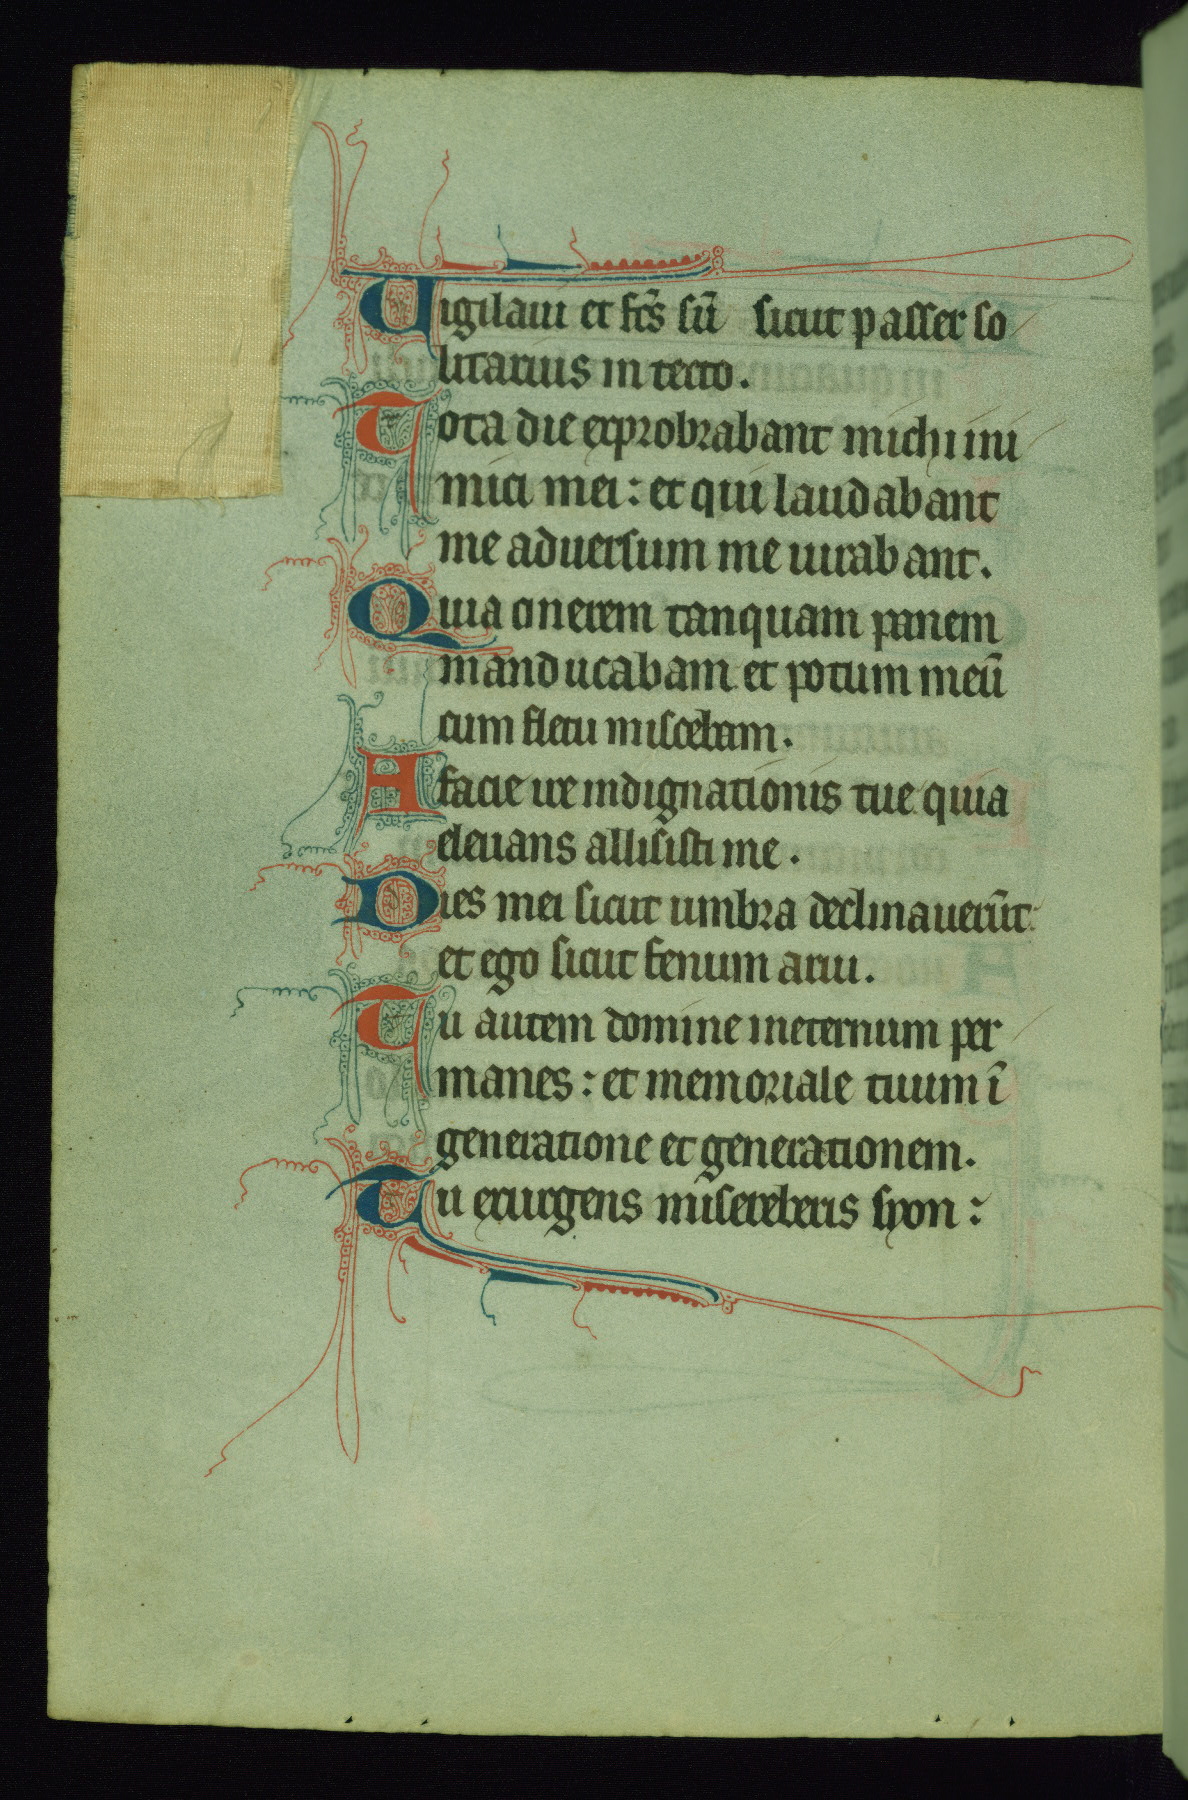 Uigilaui et fc̄s sū sicut passer so
litarius in tecto.
Tota die exprobrabant michi ini
mici mei: et qui laudabant
me aduersum me iurabant.
Quia cinerem tanquam panem
manducabam et potum meū
cum fletu miscebam.
A facie ire indignationis tue quia
eleuans allisisti me.
Dies mei sicut umbra declinauerūt:
et ego sicut fenum arui.
Tu autem domine ineternum per
manes: et memoriale tuum ī
generatione et generationem.
Tu exurgens misereberis syon: